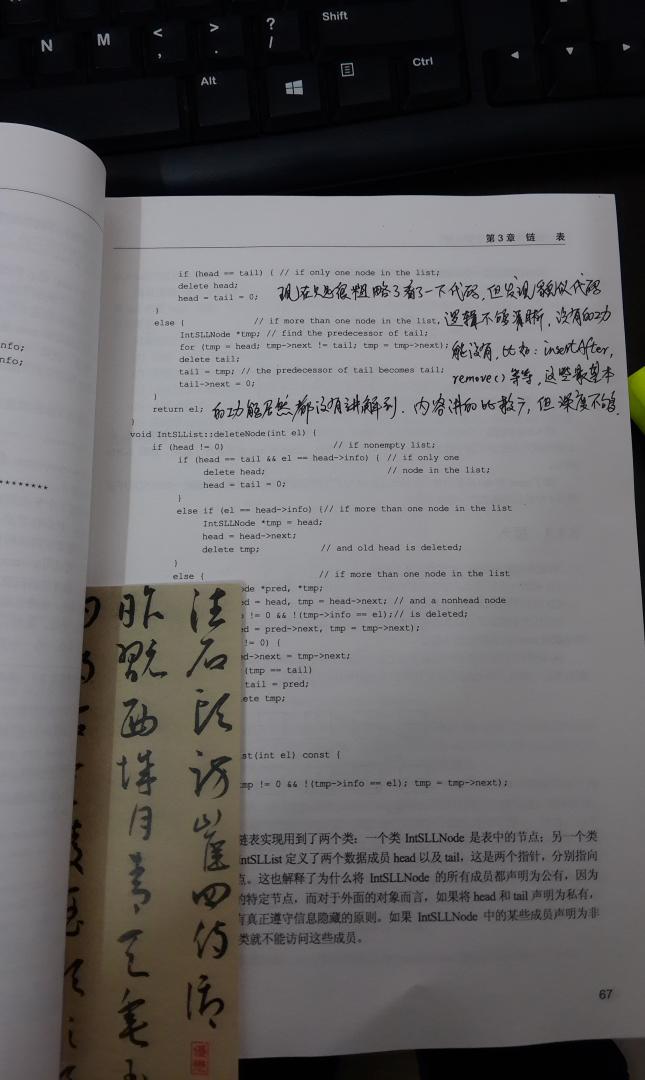 Shift
N
M
<
,
>
.
?
/
Alt
Ctrl
第3章 链 表
nfo;
nfo;
********
if (head == tail) { // if only one node in the list;
delete head;
head = tail = 0;
}
else { // if more than one node in the list,
IntSLLNode *tmp; // find the predecessor of tail;
for (tmp = head; tmp->next != tail; tmp = tmp->next);
delete tail;
tail = tmp; // the predecessor of tail becomes tail;
tail->next = 0;
}
return el;
}
现在只是很粗略了看了一下代码,但发现貌似代码
逻辑不够清晰,没有的功
能没有,比如:insertAfter,
remove()等等,这些最基本
的功能居然都没有讲解到.内容讲的比较广,但深度不够.
void IntSLList::deleteNode(int el) {
if (head != 0) // if nonempty list;
if (head == tail && el == head->info) { // if only one
delete head; // node in the list;
head = tail = 0;
}
else if (el == head->info) {// if more than one node in the list
IntSLLNode *tmp = head;
head = head->next;
delete tmp; // and old head is deleted;
}
else { // if more than one node in the list
ode *pred, *tmp;
ed = head, tmp = head->next; // and a nonhead node
!= 0 && !(tmp->info == el);// is deleted;
ed = pred->next, tmp = tmp->next);
!= 0) {
ed->next = tmp->next;
(tmp == tail)
tail = pred;
ete tmp;
st(int el) const {
mp != 0 && !(tmp->info == el); tmp = tmp->next);
链表实现用到了两个类:一个类 IntSLLNode 是表中的节点;另一个类
IntSLList 定义了两个数据成员 head 以及 tail,这是两个指针,分别指向
点。这也解释了为什么将 IntSLLNode 的所有成员都声明为公有,因为
的特定节点,而对于外面的对象而言,如果将 head 和 tail 声明为私有,
有真正遵守信息隐藏的原则。如果 IntSLLNode 中的某些成员声明为非
类就不能访问这些成员。
67
石
昨
西
月